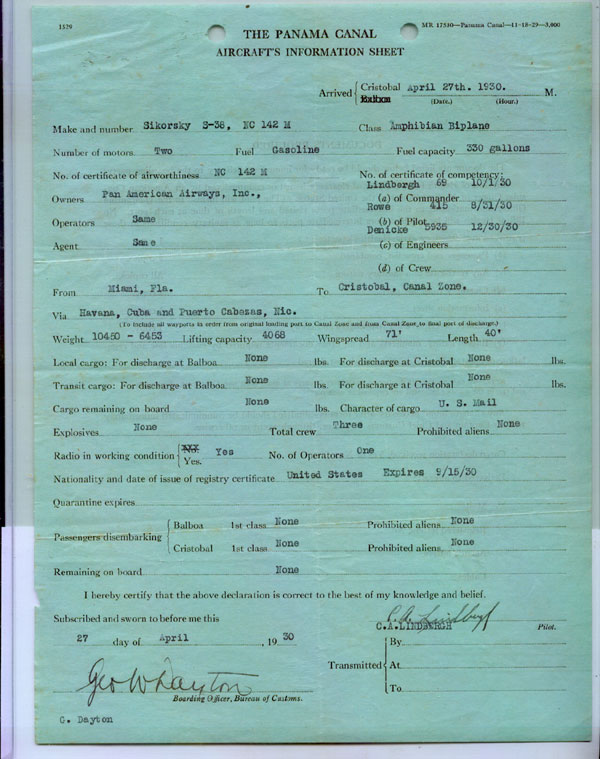 1529
MR 17510—Panama Canal—11-18-29—3,000
THE PANAMA CANAL
AIRCRAFT'S INFORMATION SHEET
Arrived { Cristobal April 27th. 1930. M.
Balboa (Date.) (Hour.)
Make and number Sikorsky S-38, NC 142 M Class Amphibian Biplane
Number of motors Two Fuel Gasoline Fuel capacity 330 gallons
No. of certificate of airworthiness NC 142 M No. of certificate of competency:
Lindbergh 69 10/1/30
Owners Pan American Airways, Inc., (a) of Commander
Rowe 415 8/31/30
Operators Same (b) of Pilot
Denicke 5935 12/30/30
Agent Same (c) of Engineers
(d) of Crew
From Miami, Fla. To Cristobal, Canal Zone.
Via Havana, Cuba and Puerto Cabezas, Nic.
(To include all wayports in order from original loading port to Canal Zone and from Canal Zone to final port of discharge.)
Weight 10480 - 6453 Lifting capacity 4068 Wingspread 71' Length 40'
Local cargo: For discharge at Balboa None lbs. For discharge at Cristobal None lbs.
Transit cargo: For discharge at Balboa None lbs. For discharge at Cristobal None lbs.
Cargo remaining on board None lbs. Character of cargo U. S. Mail
Explosives None Total crew Three Prohibited aliens None
Radio in working condition { No. Yes No. of Operators One
Yes.
Nationality and date of issue of registry certificate United States Expires 9/15/30
Quarantine expires
Passengers disembarking { Balboa 1st class None Prohibited aliens None
Cristobal 1st class None Prohibited aliens None
Remaining on board None
I hereby certify that the above declaration is correct to the best of my knowledge and belief.
Subscribed and sworn to before me this
C. A. Lindbergh
C.A.LINDBERGH Pilot.
27 day of April, 1930
Transmitted { By
At
To
Geo W Dayton
Boarding Officer, Bureau of Customs.
G. Dayton